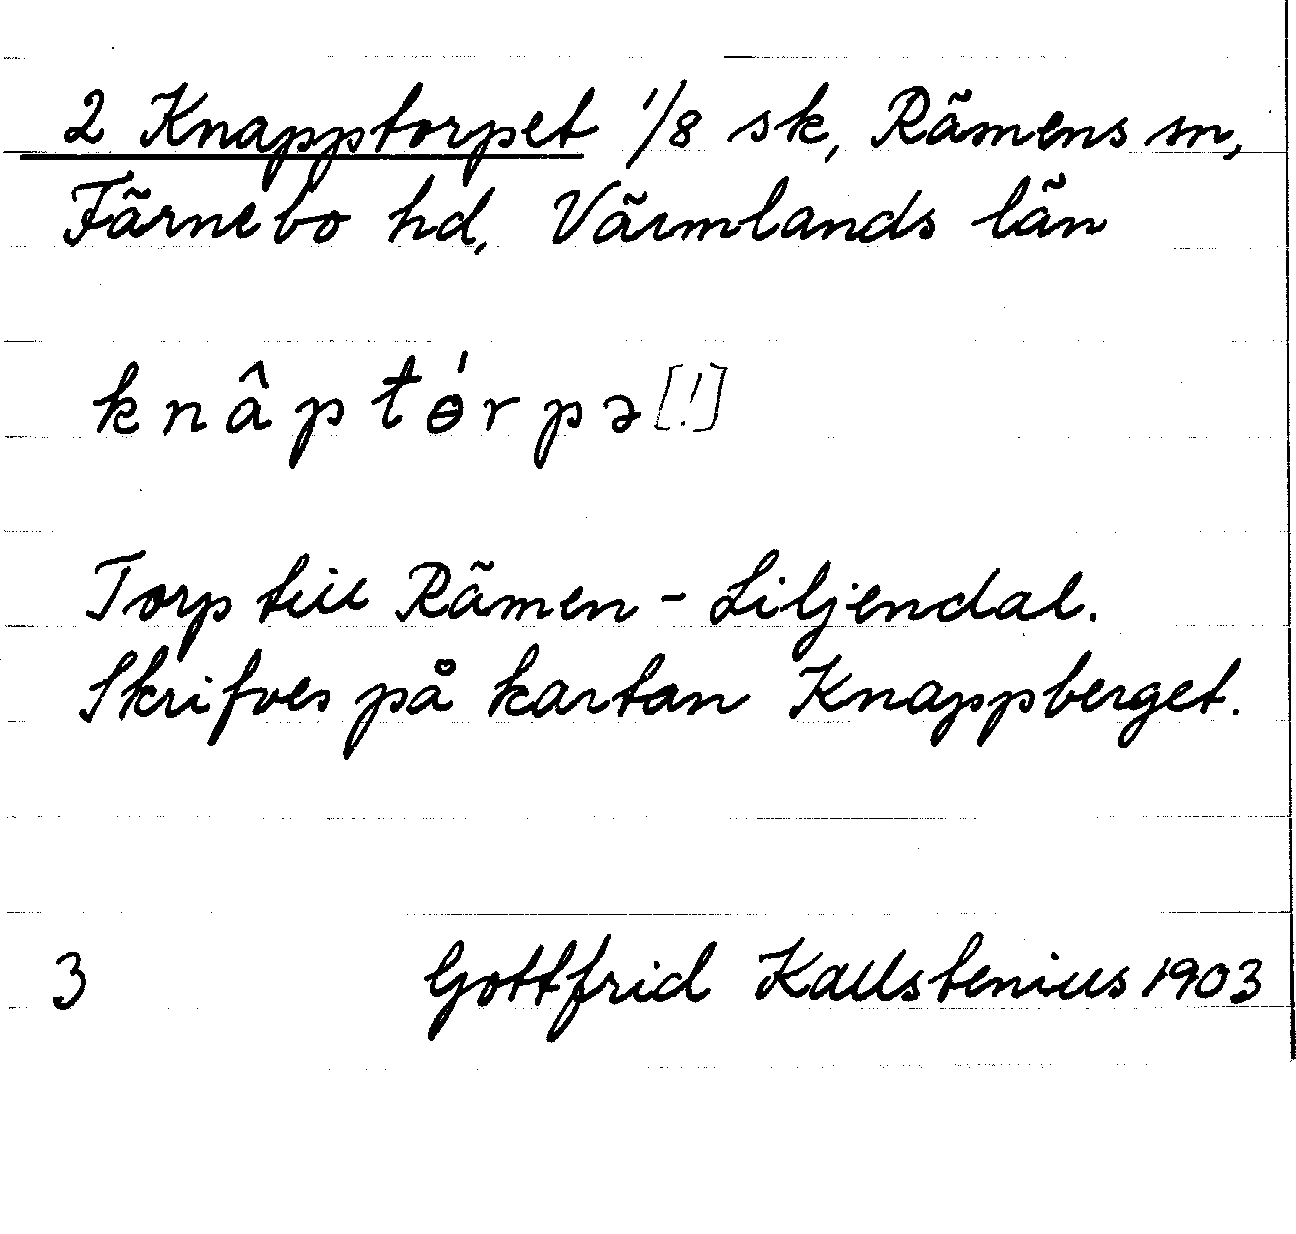 2 Knapptorpet 1/8 sk, Rämens sn,
Färnebo hd, Värmlands län
knâptɵ́rpə [!]
Torp till Rämen - Liljendal.
Skrifves på kartan Knappberget.
3 Gottfrid Kallstenius 1903